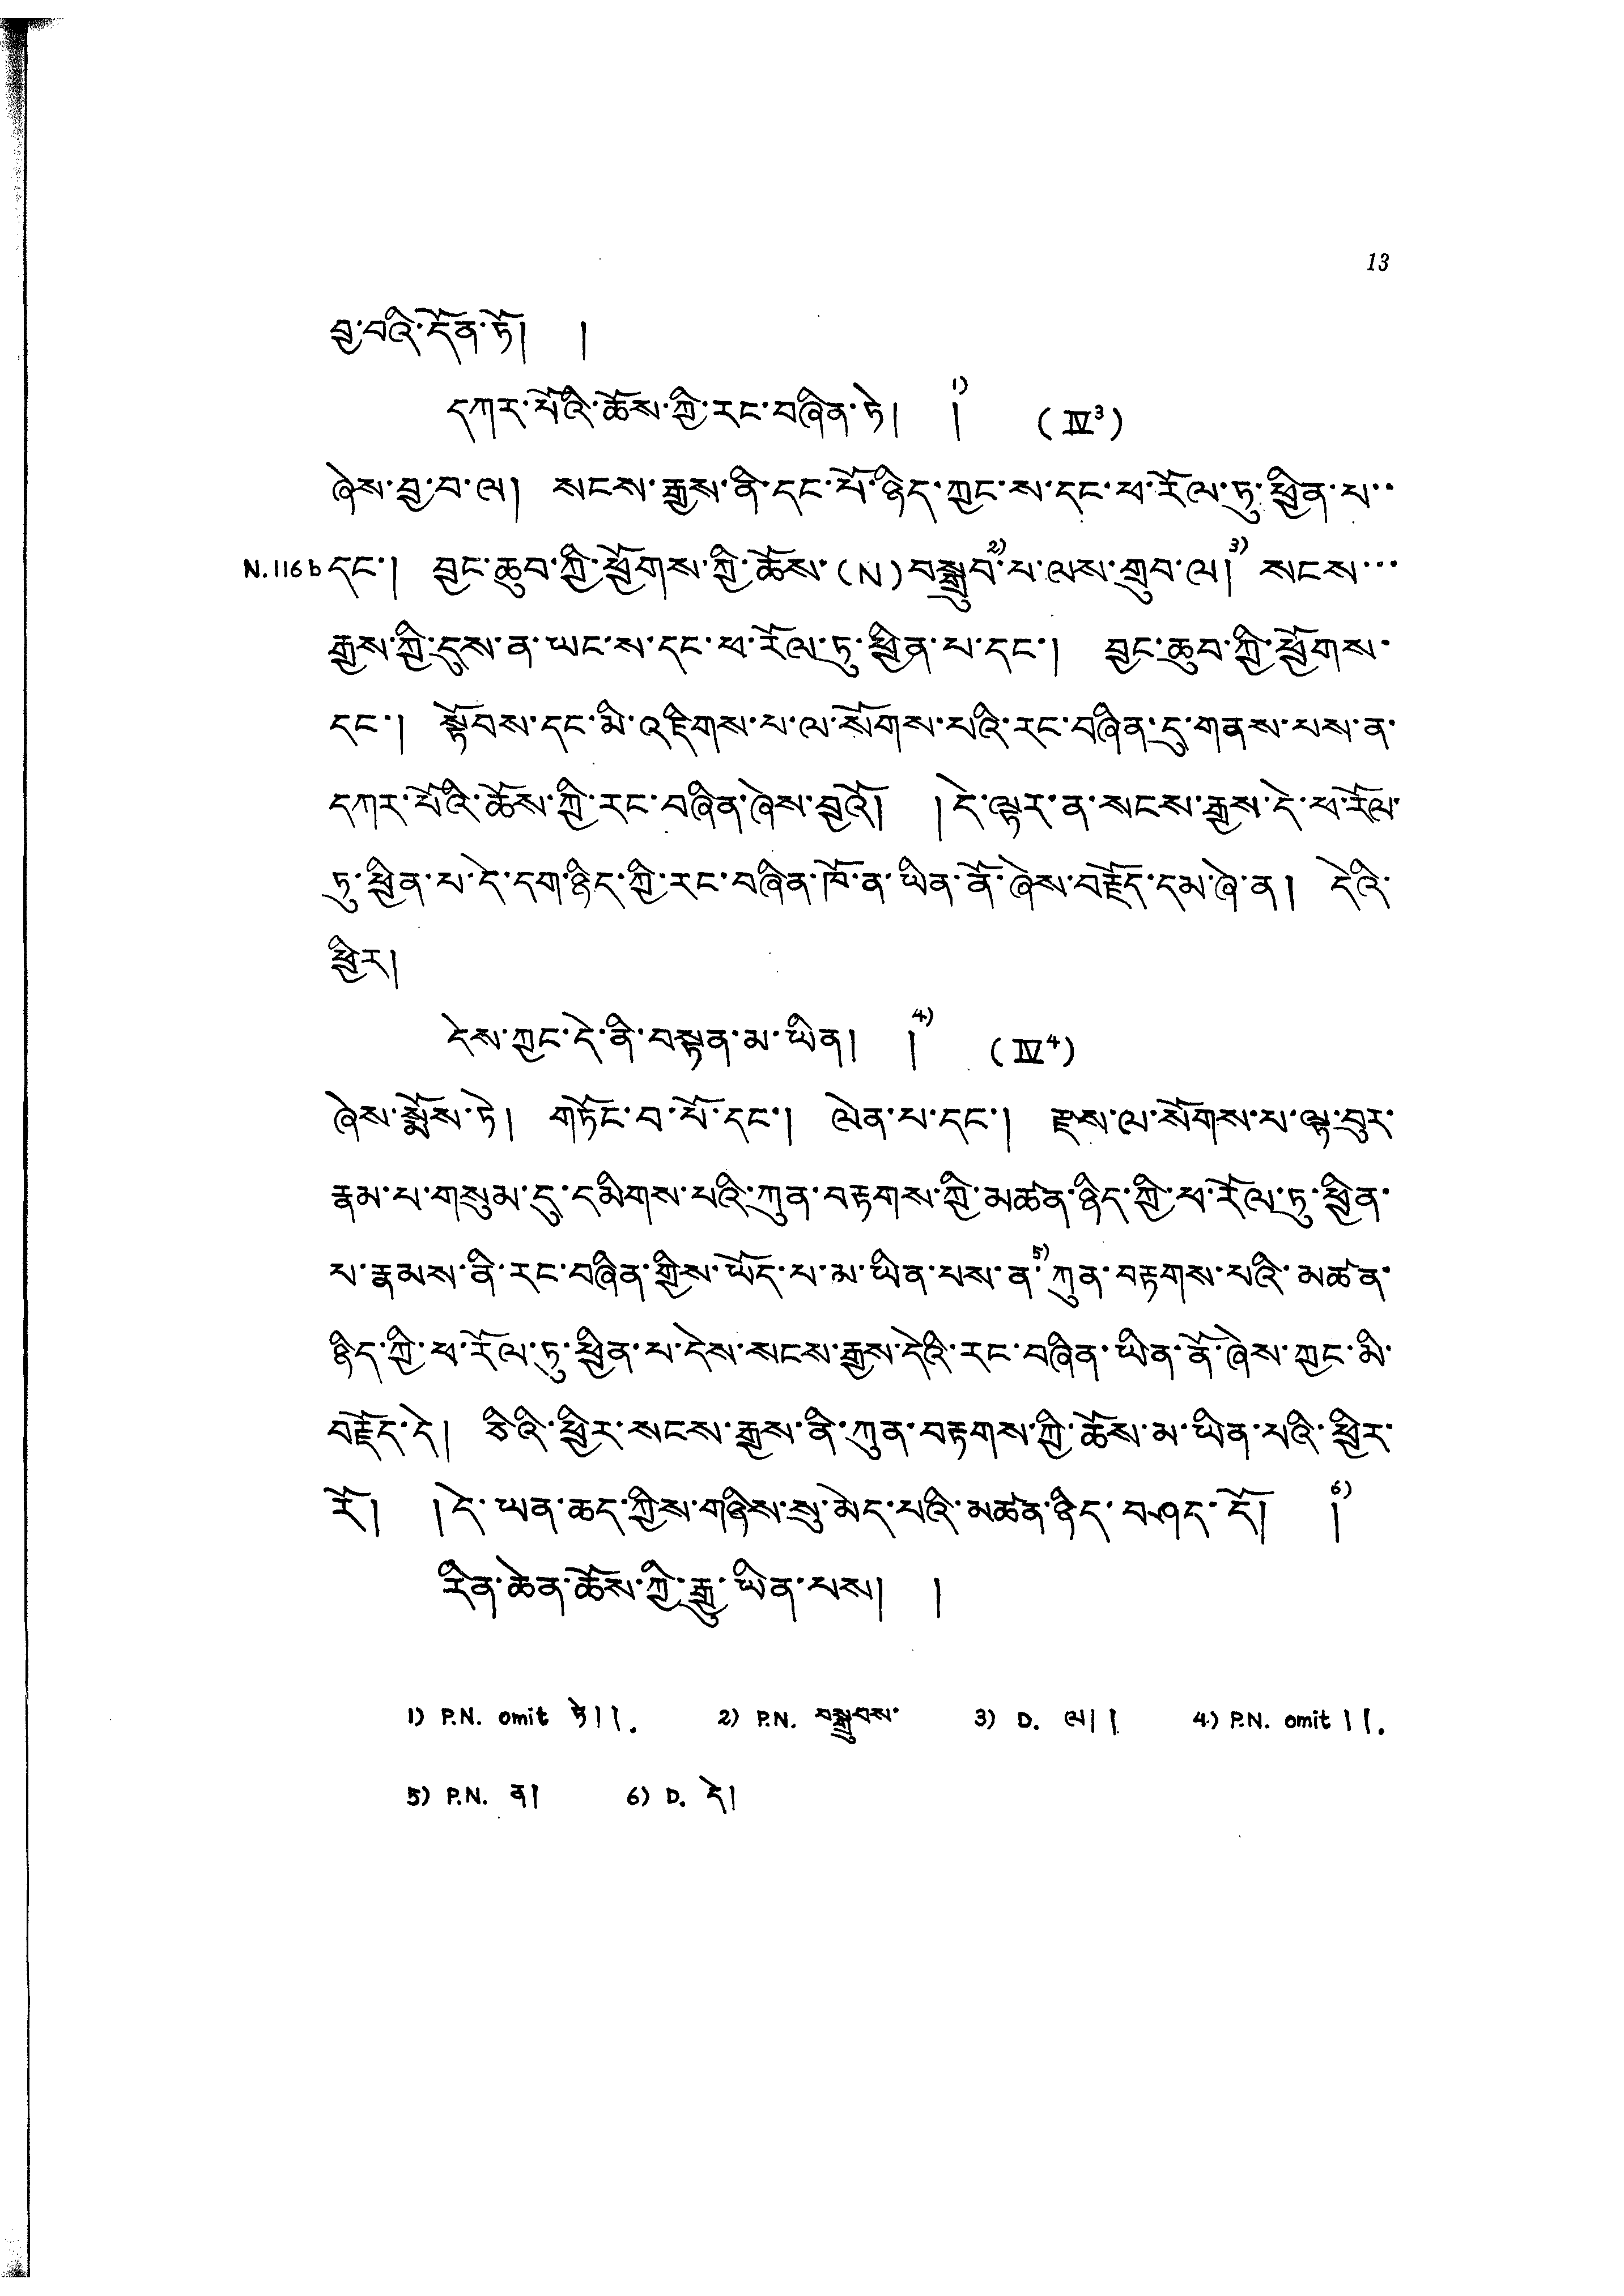 13
བྱ་བའི་དོན་ཏོ། །
དཀར་པོའི་ཆོས་ཀྱི་རང་བཞིན་ཏེ། །1) (IV3)
ཞེས་བྱ་བ་ལ། སངས་རྒྱས་ནི་དང་པོ་ཉིད་ཀྱང་ས་དང་ཕ་རོལ་ཏུ་ཕྱིན་པ་..
N.116b དང་། བྱང་ཆུབ་ཀྱི་ཕྱོགས་ཀྱི་ཆོས་(N)བསྒྲུབ2)་པ་ལས་གྲུབ་ལ།3) སངས་...
རྒྱས་ཀྱི་དུས་ན་ཡང་ས་དང་ཕ་རོལ་ཏུ་ཕྱིན་པ་དང་། བྱང་ཆུབ་ཀྱི་ཕྱོགས་
དང་། སྟོབས་དང་མི་འཇིགས་པ་ལ་སོགས་པའི་རང་བཞིན་དུ་གནས་པས་ན་
དཀར་པོའི་ཆོས་ཀྱི་རང་བཞིན་ཞེས་བྱའོ། །དེ་ལྟར་ན་སངས་རྒྱས་དེ་ཕ་རོལ་
ཏུ་ཕྱིན་པ་དེ་དག་ཉིད་ཀྱི་རང་བཞིན་ཁོ་ན་ཡིན་ནོ་ཞེས་བརྗོད་དམ་ཞེ་ན། དེའི་
ཕྱིར།
དེས་ཀྱང་དེ་ནི་བསྟན་མ་ཡིན། །4) (IV4)
ཞེས་སྨོས་ཏེ། གཏོང་བ་པོ་དང་། ལེན་པ་དང་། རྫས་ལ་སོགས་པ་ལྟ་བུར་
རྣམ་པ་གསུམ་དུ་དམིགས་པའི་ཀུན་བརྟགས་ཀྱི་མཚན་ཉིད་ཀྱི་ཕ་རོལ་ཏུ་ཕྱིན་
པ་རྣམས་ནི་རང་བཞིན་གྱིས་ཡོད་པ་མ་ཡིན་པས་ན་5)ཀུན་བརྟགས་པའི་མཚན་
ཉིད་ཀྱི་ཕ་རོལ་ཏུ་ཕྱིན་པ་དེས་སངས་རྒྱས་དེའི་རང་བཞིན་ཡིན་ནོ་ཞེས་ཀྱང་མི་
བརྗོད་དེ། ཅིའི་ཕྱིར་སངས་རྒྱས་ནི་ཀུན་བརྟགས་ཀྱི་ཆོས་མ་ཡིན་པའི་ཕྱིར་
རོ། །དེ་ཡན་ཆད་ཀྱིས་གཉིས་སུ་མེད་པའི་མཚན་ཉིད་བཤད་དོ། །6)
རིན་ཆེན་ཆོས་ཀྱི་རྒྱུ་ཡིན་པས། །
1) P.N. omit ཏེ། །. 2) P.N. བསྒྲུབས་ 3) D. ལ། ། 4) P.N. omit ། །.
5) P.N. ན། 6) D. དེ།